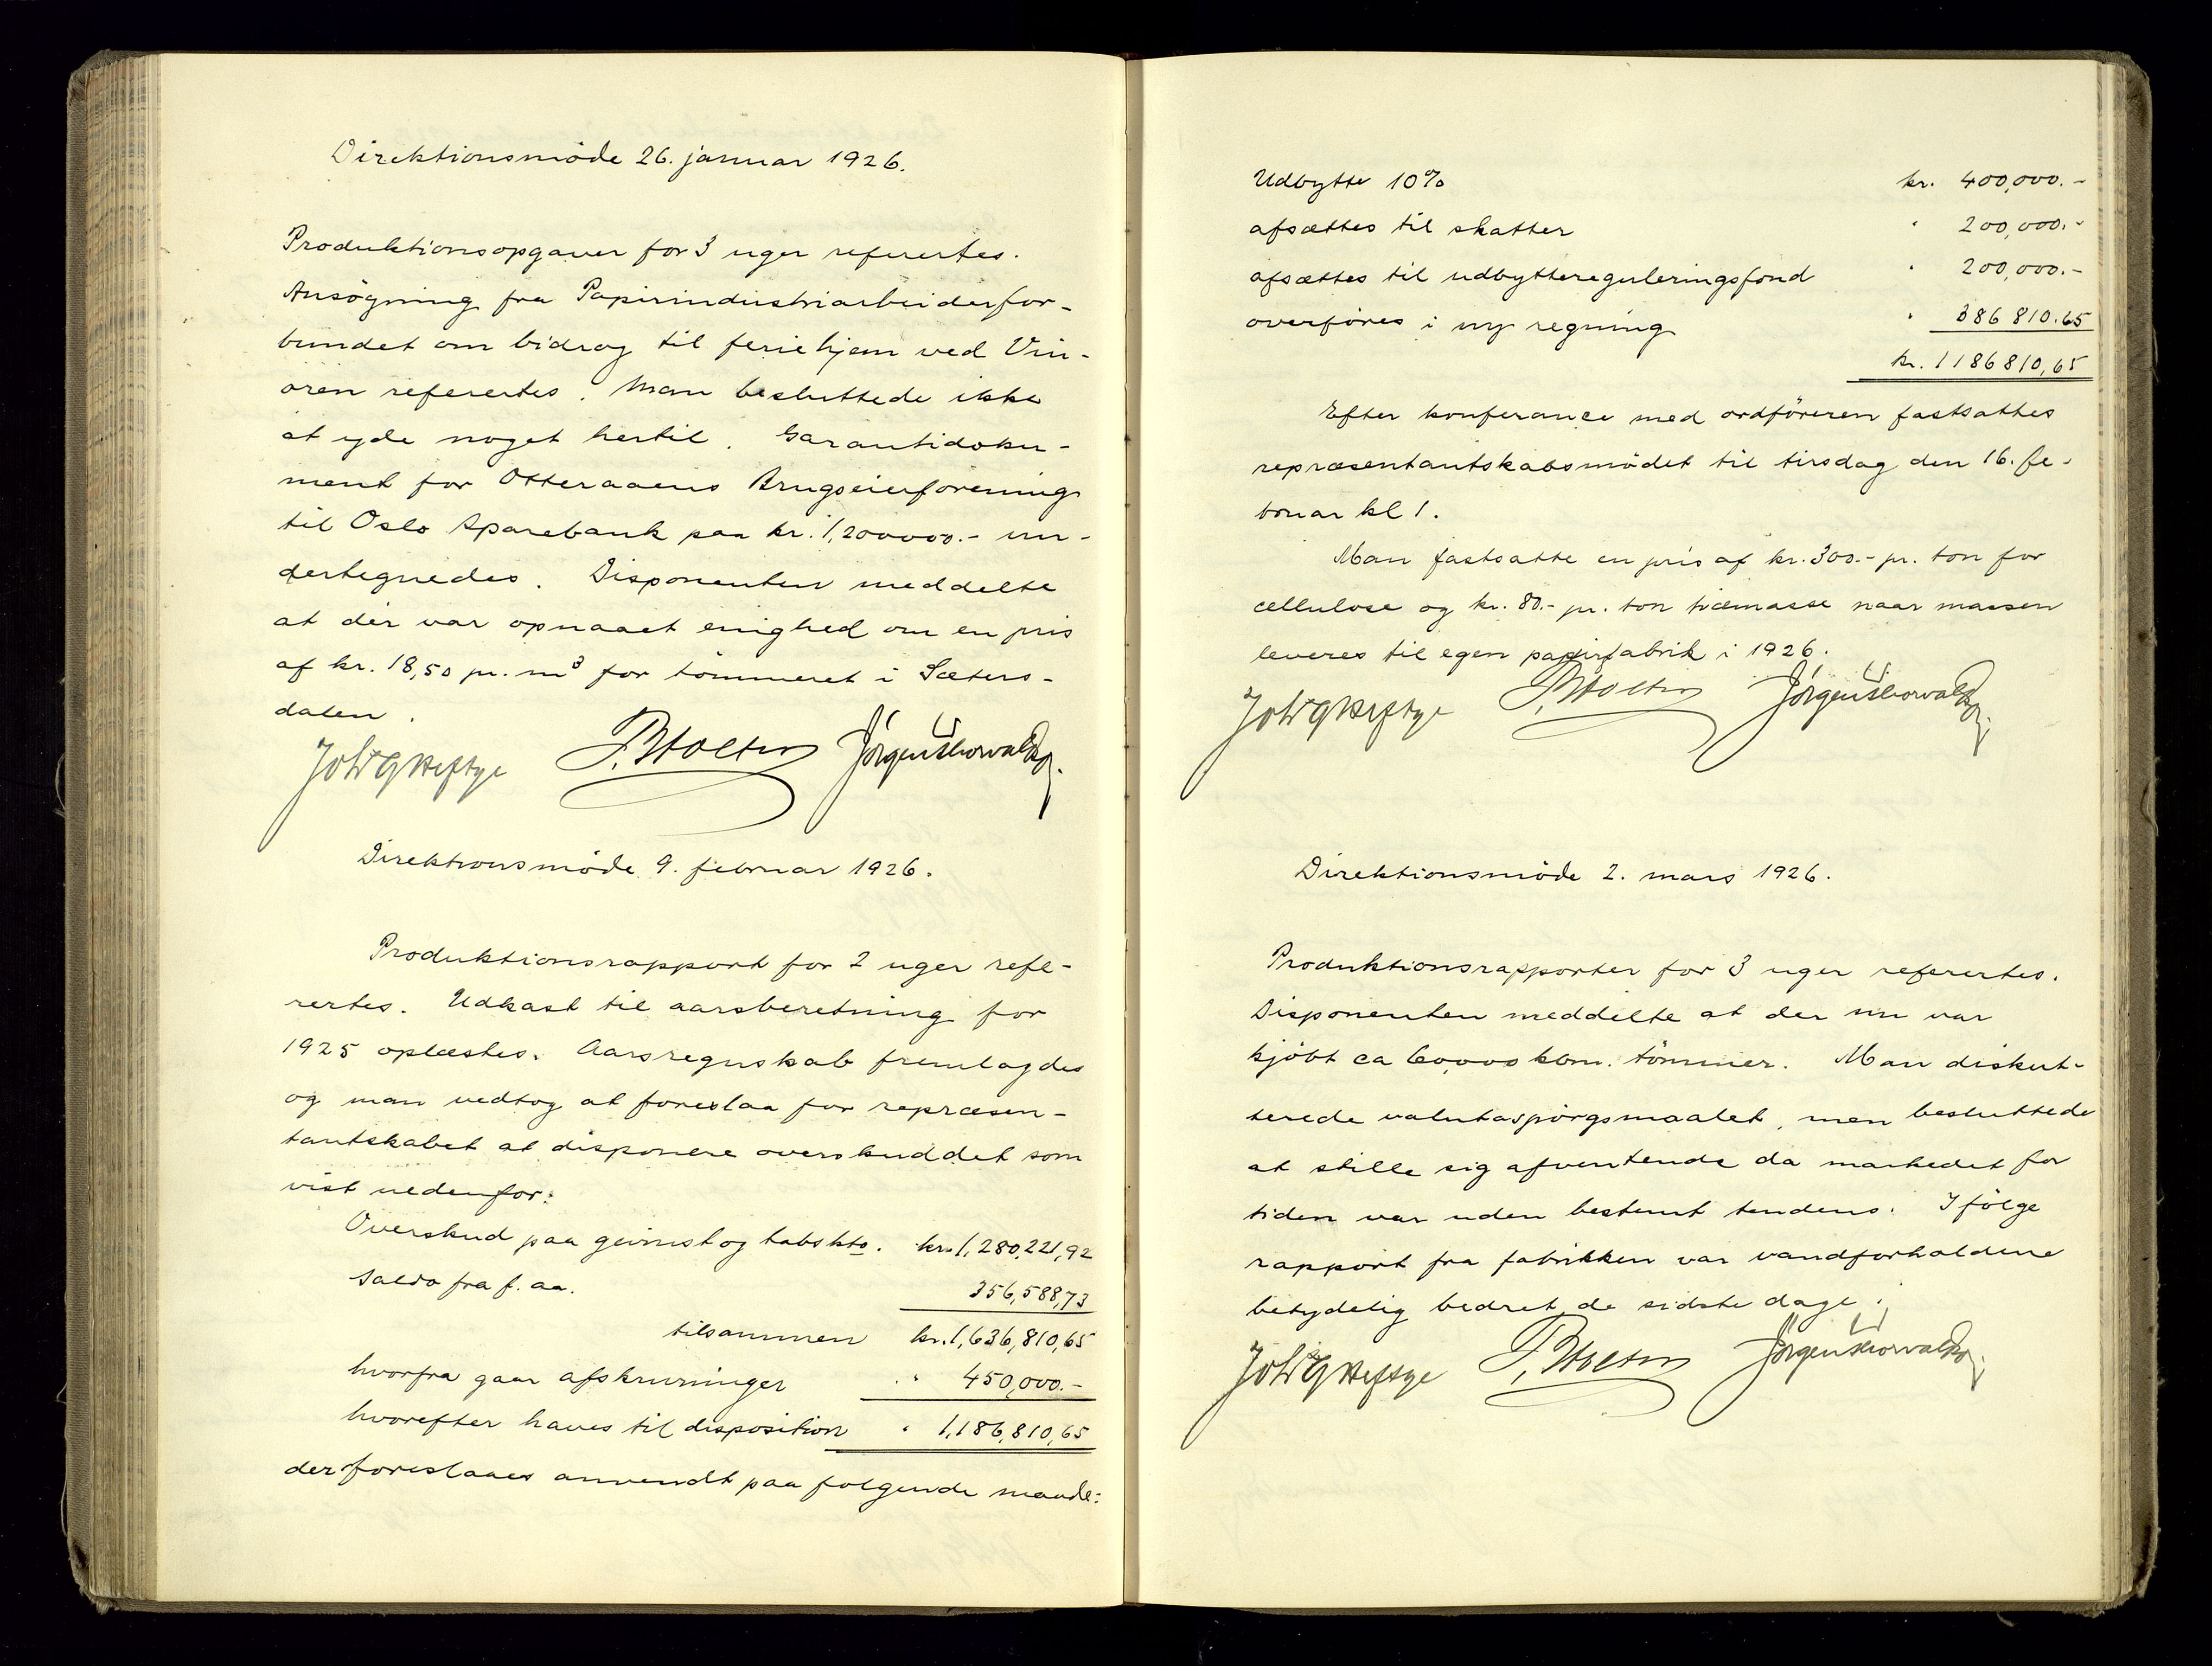 Direktionsmöde 26. januar 1926.
Produktionsopgaver for 3 uger refertes.
Ansögning fra Papirindustriarbeiderfor-
bundet om bidrag til feriehjem ved Vin-
oren refertes. Man besluttede ikke
at yde noget hertil. Garantidoku-
ment for Otteraaens Brugseierforening
til Oslo Sparebank paa kr. 1,200000.- un-
dertegnedes. Disponenten meddelte
at der var opnaaet enighed om en pris
af kr. 18,50 pr. m³ for tömmeret i Sæters-
dalen.
Joh G Heftye P. Holter Jörgen Thorvald
Direktionsmöde 9. februar 1926.
Produktionsrapport for 2 uger refe-
rertes. Udkast til aarsberetning for
1925 oplæstes. Aarsregnskab fremlagdes
og man vedtog at foreslaa for repræsen-
tantskabet at disponere overskuddet som
vist nedenfor:
Overskud paa gevinst og tabskto. kr. 1,280,221,92
Saldo fra f. aa. 356,588,73
tilsammen kr. 1,636,810,65
hvorfra gaar afskrivninger " 450,000.-
hvorefter haves til disposition " 1,186,810,65
der foreslaaes anvendt paa følgende maade:
Udbytte 10% kr. 400,000.-
afsættes til skatter " 200,000.-
afsættes til udbyttereguleringsfond " 200,000.-
overföres i ny regning " 386 810.65
kr. 1186810,65
Efter konferance med ordföreren fastsattes
repræsentantskabsmödet til tirsdag den 16. fe-
bruar kl 1.
Man fastsatte en pris af kr. 300.- pr. ton for
cellulose og kr. 80.- pr. ton træmasse naar massen
leveres til egen papirfabrik i 1926.
Joh G Heftye P. Holter Jörgen Thorvald
Direktionsmöde 2. mars 1926.
Produktionsrapporter for 3 uger refererertes.
Disponenten meddelte at der nu var
kjöbt ca 60,000 kbm. tömmer. Man diskut-
terede valutaspörgsmaalet, men besluttede
at stille sig afventende da markedet for
tiden var uden bestemt tendens. Ifölge
rapport fra fabrikken var vandforholdene
betydelig bedret de sidste dage.
Joh G Heftye P. Holter Jörgen Thorvald